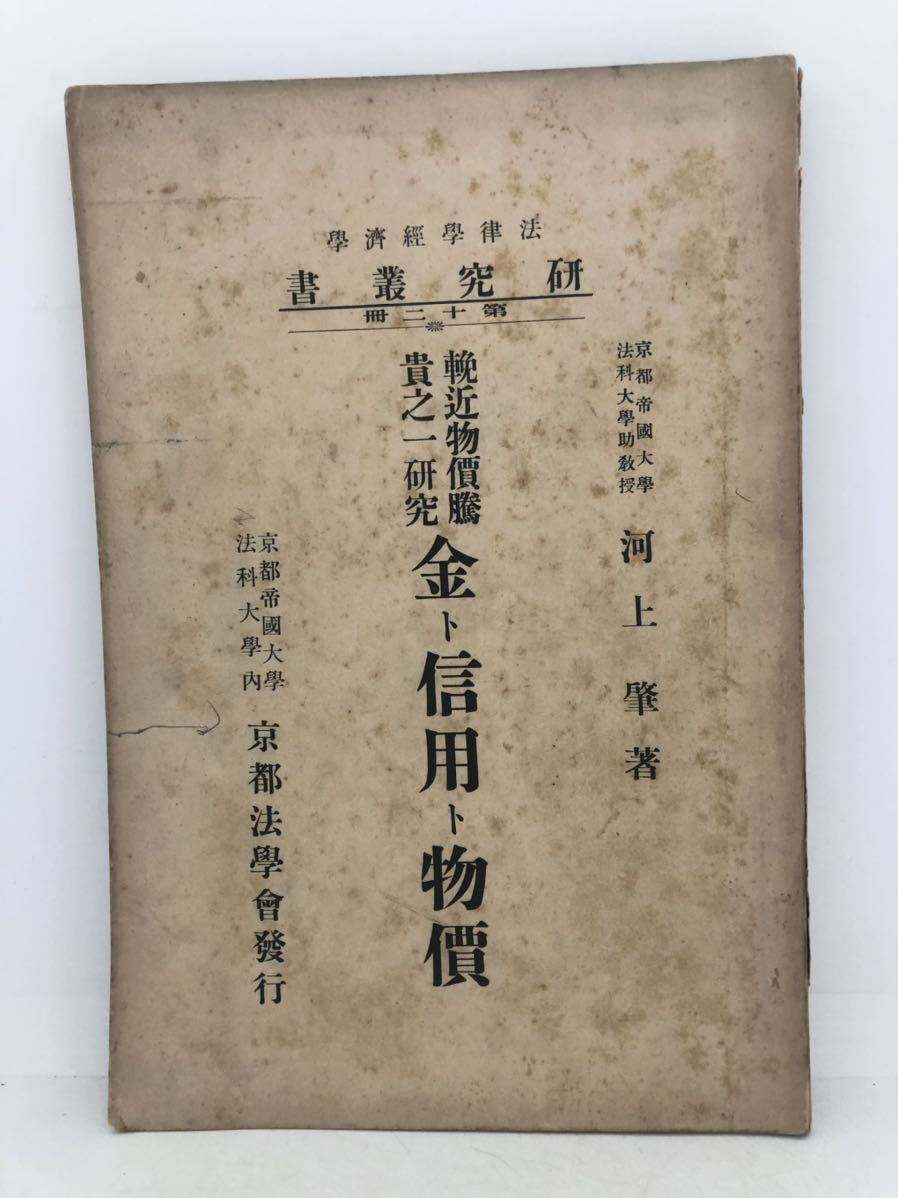 法律學經濟學
研究叢書
第十二冊
京都帝國大學
法科大學助教授
河上肇著
輓近物價騰
貴之一研究
金ト信用ト物價
京都帝國大學
法科大學內
京都法學會發行